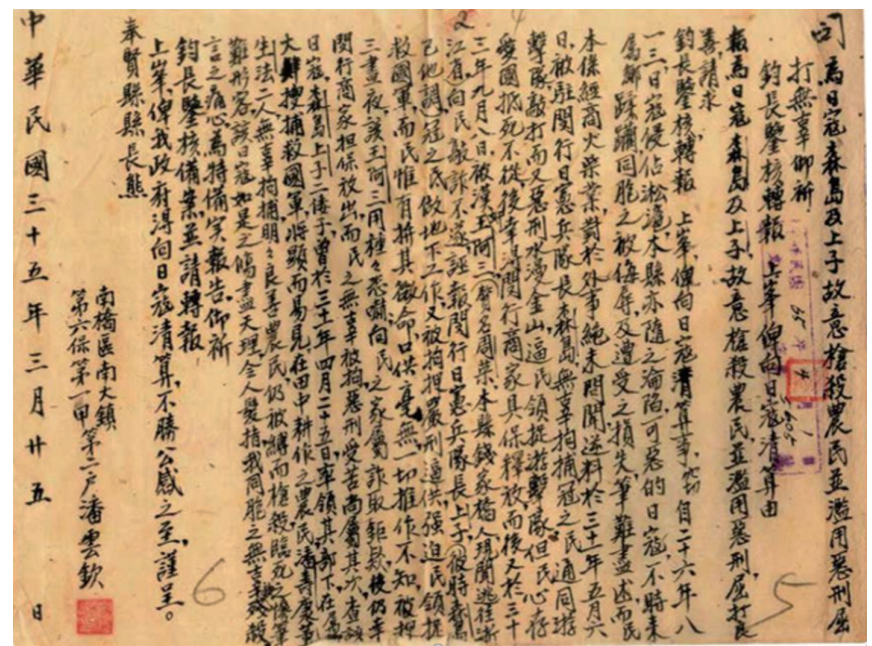 為日寇森島及上子故意槍殺農民並濫用惡刑屈
打無辜仰祈
鈞長鑒核轉報 上峯俾向日寇清算由
報為日寇森島及上子故意槍殺農民並濫用惡刑屈打良
善請求
鈞長鑒核轉報 上峯俾向日寇清算事 自二十六年八
一三日寇侵佔淞滬本縣亦隨之淪陷可惡的日寇不時來
屬鄉蹂躪同胞之被侮辱及遭受之損失筆難盡述而民
本係經商火柴業對於外事絕未聞問詎料於三十年五月六
日被駐閔行日憲兵隊長森島無辜拘捕冠之民通同游
擊隊敲打而又惡刑水燙金山逼民領捉游擊隊但民心存
愛國抵死不從後幸得閔行商家具保釋放而後又於三十
三年九月八日被漢王阿三
江有向民敲詐不遂誣報閔行日憲兵隊長上子
已他調冠之民做地下工作又被拘押嚴刑逼供强迫民領捉
救國軍而民惟有拚其微命口供毫無一切推作不知被押
三晝夜該王阿三用種々恐嚇向民之家屬詐取鉅欵後仍幸
閔行商家担保放出而民之無辜被拘惡刑受苦尚屬其次查該
日寇森島上子二倭子曾於三十一年四月二十五日率領其部下在
大肆搜捕救國軍將顯而易見在田中耕作之農民潘壽康
生法二人無辜拘捕明々良善農民仍被縛而槍殺臨死之慘筆
難形容該日寇如是之傷盡天理令人髮指我同胞之無辜
言之痛心為特備實報告仰祈
鈞長鑒核備案並請轉報
上峯俾我政府得向日寇清算不勝公感之至謹呈。
奉賢縣縣長熊
南橋區南大鎮
第六保第一甲第二戶潘雲欽
中華民國三十五年三月廿五日
2
4
5
6